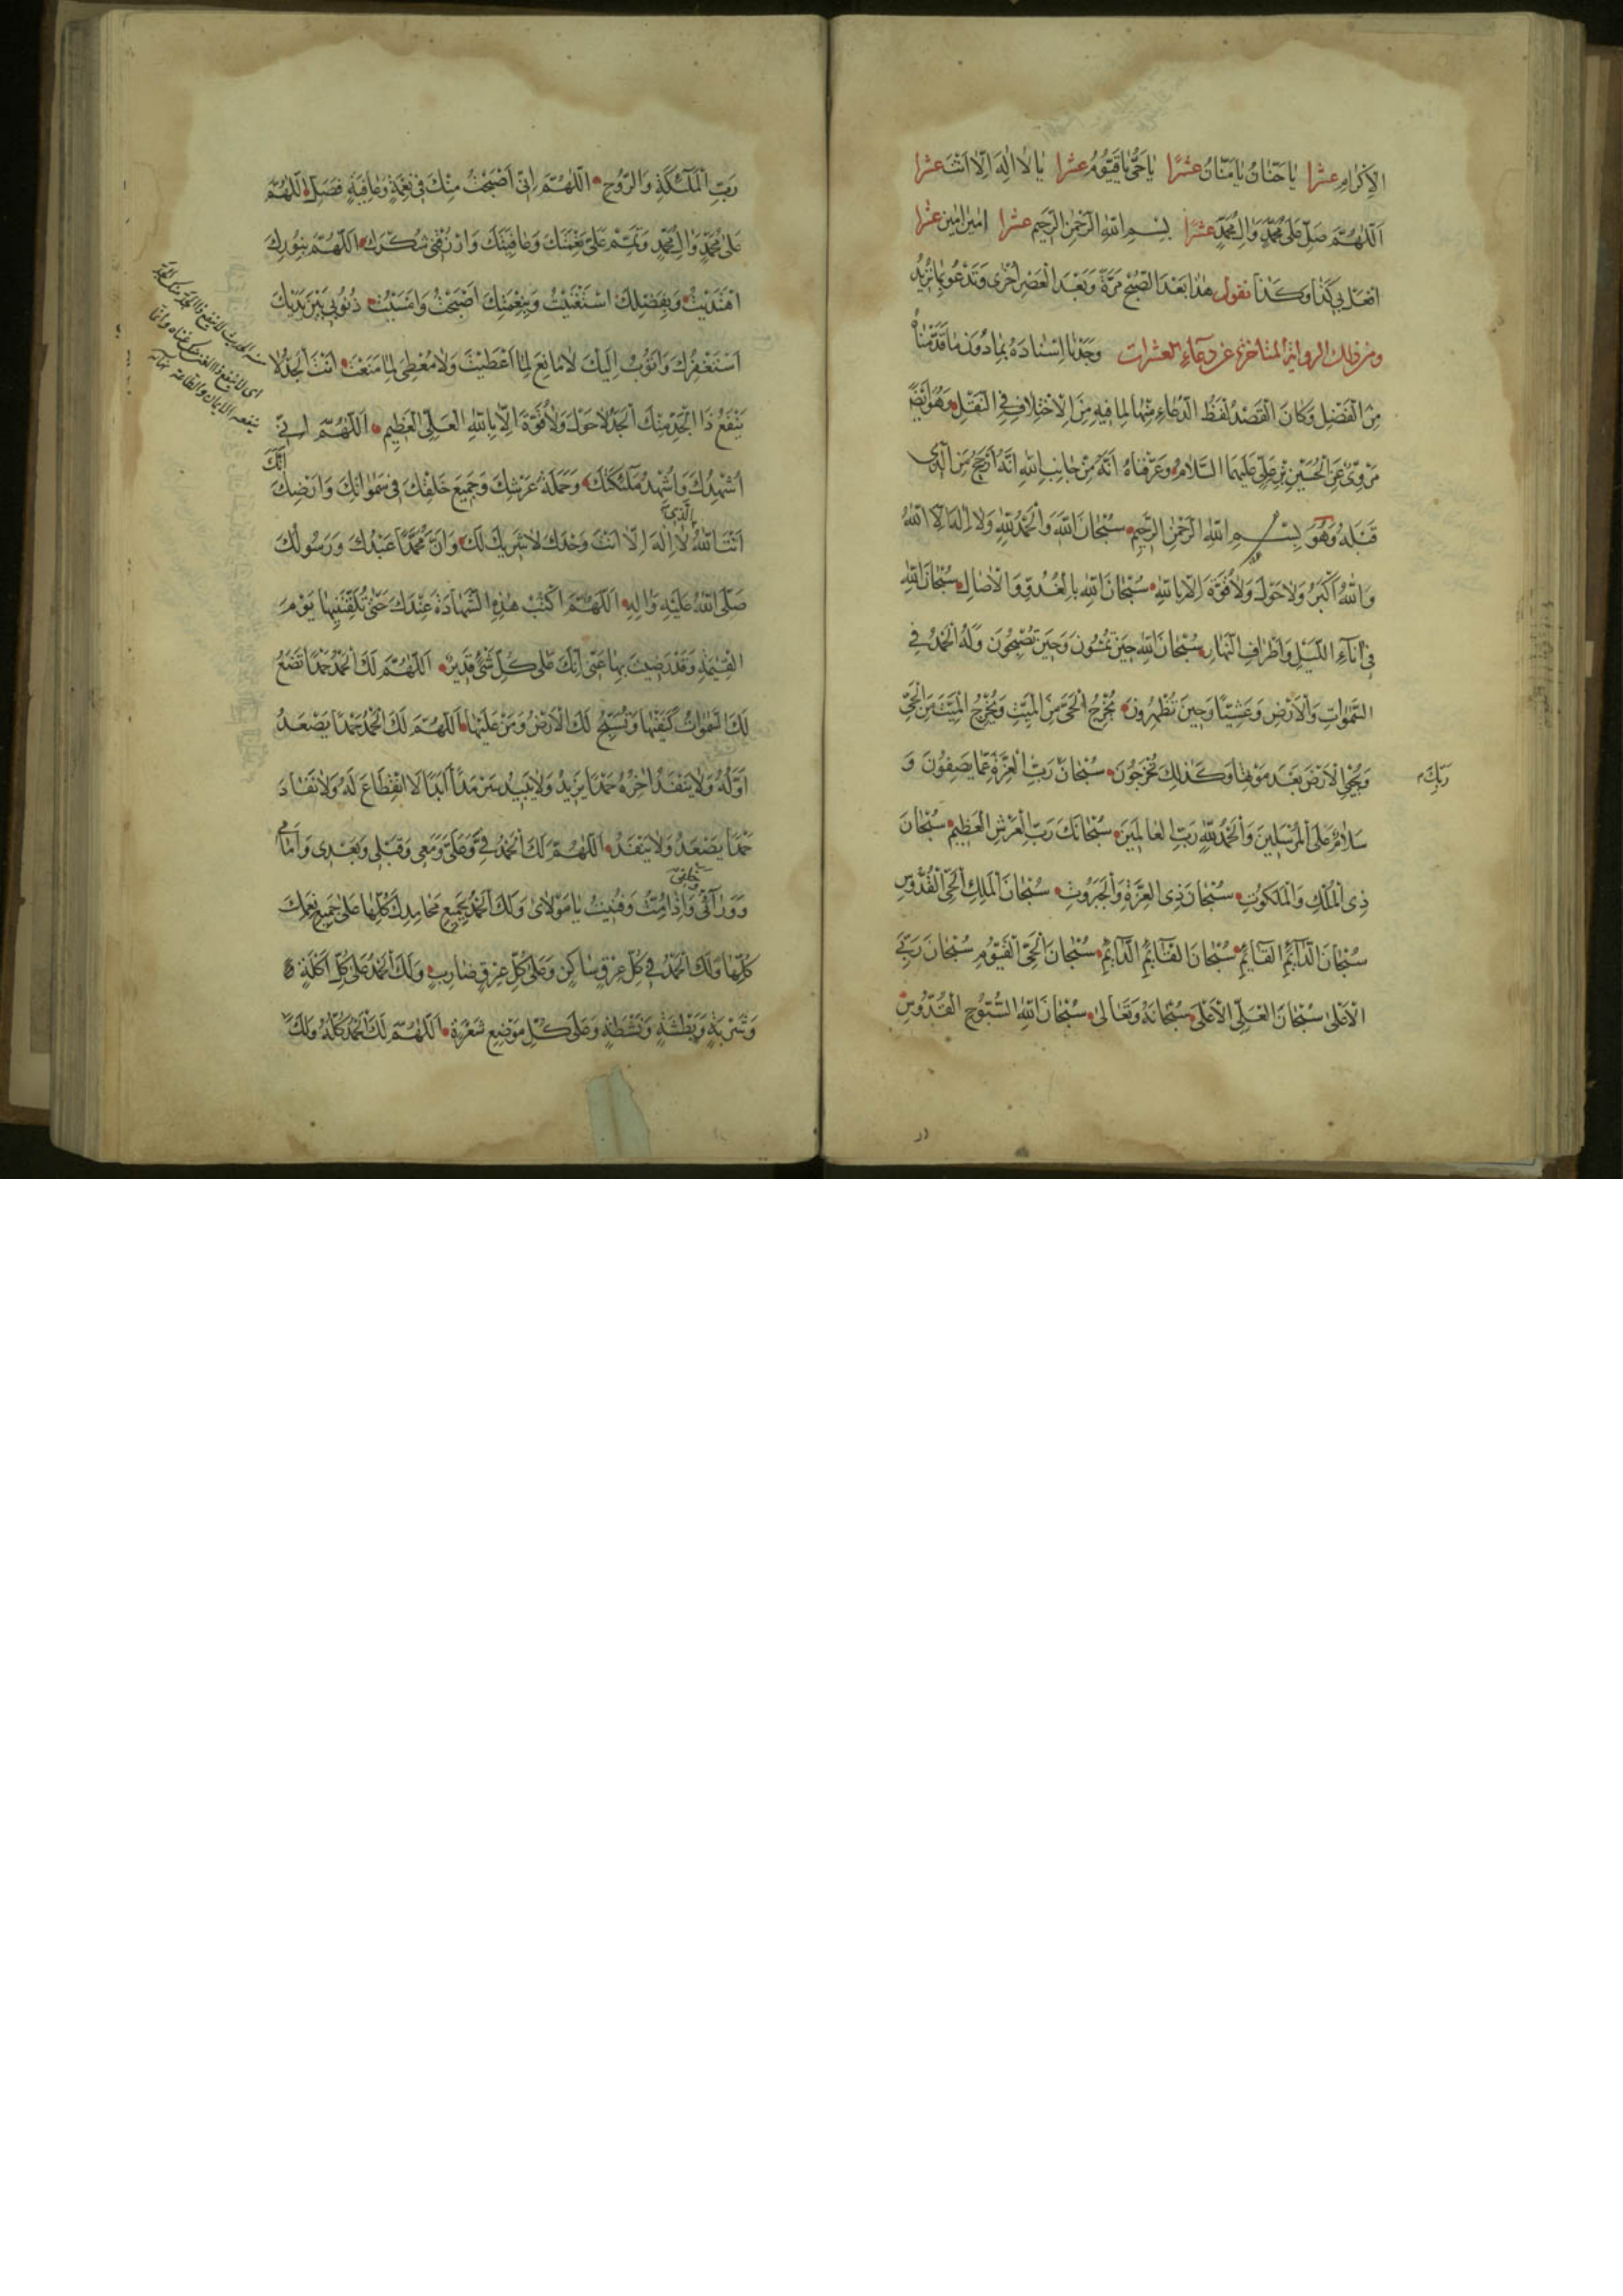 الْاِكْرَامِ عشرا يَا حَنَّانُ يَا مَنَّانُ عشرًا يَا حَيُّ يَا قَيُّومُ عشرا يَا لَا اِلٰهَ اِلَّا اَنْتَ عشرا
اَللّٰهُمَّ صَلِّ عَلٰى مُحَمَّدٍ وَاٰلِ مُحَمَّدٍ عشرًا بِسْمِ اللّٰهِ الرَّحْمٰنِ الرَّحِيمِ عشرا اٰمِينَ اٰمِينَ عشرا
افْعَلْ بِي كَذَا وَكَذَا تقول هٰذَا بَعْدَ الصُّبْحِ مَرَّةً وَبَعْدَ الْعَصْرِ اُخْرٰى وَتَدْعُو بِمَا تُرِيدُ
ومن ذلك الرواية المتاخرة عن دعاء العشرات وَجَدْنَا اِسْنَادَهُ بِمَا دُونَ مَا قَدَّمْنَاهُ
مِنَ الْفَضْلِ وَكَانَ الْقَصْدُ لَفْظَ الدُّعَاءِ مِنْهَا لِمَا فِيهِ مِنَ الْاِخْتِلَافِ فِي النَّقْلِ وَهُوَ اَيْضًا
مَرْوِيٌّ عَنِ الْحُسَيْنِ بْنِ عَلِيٍّ عَلَيْهِمَا السَّلَامُ وَعَرَفْنَاهُ اَنَّهُ مِنْ جَانِبِ اللّٰهِ اَنَّهُ اَرْجَحُ مِنَ الَّذِي
قَبْلَهُ وَهُوَ بِسْمِ اللّٰهِ الرَّحْمٰنِ الرَّحِيمِ سُبْحَانَ اللّٰهِ وَالْحَمْدُ لِلّٰهِ وَلَا اِلٰهَ اِلَّا اللّٰهُ
وَاللّٰهُ اَكْبَرُ وَلَا حَوْلَ وَلَا قُوَّةَ اِلَّا بِاللّٰهِ سُبْحَانَ اللّٰهِ بِالْغُدُوِّ وَالْاٰصَالِ سُبْحَانَ اللّٰهِ
فِي اٰنَاءِ اللَّيْلِ وَاَطْرَافِ النَّهَارِ سُبْحَانَ اللّٰهِ حِينَ تُمْسُونَ وَحِينَ تُصْبِحُونَ وَلَهُ الْحَمْدُ فِي
السَّمٰوَاتِ وَالْاَرْضِ وَعَشِيًّا وَحِينَ تُظْهِرُونَ يُخْرِجُ الْحَيَّ مِنَ الْمَيِّتِ وَيُخْرِجُ الْمَيِّتَ مِنَ الْحَيِّ
وَيُحْيِي الْاَرْضَ بَعْدَ مَوْتِهَا وَكَذٰلِكَ تُخْرَجُونَ سُبْحَانَ رَبِّ الْعِزَّةِ عَمَّا يَصِفُونَ وَ
رَبِّكَ
سَلَامٌ عَلَى الْمُرْسَلِينَ وَالْحَمْدُ لِلّٰهِ رَبِّ الْعَالَمِينَ سُبْحَانَكَ رَبَّ الْعَرْشِ الْعَظِيمِ سُبْحَانَ
ذِي الْمُلْكِ وَالْمَلَكُوتِ سُبْحَانَ ذِي الْعِزَّةِ وَالْجَبَرُوتِ سُبْحَانَ الْمَلِكِ الْحَيِّ الْقُدُّوسِ
سُبْحَانَ الدَّائِمِ الْقَائِمِ سُبْحَانَ الْقَائِمِ الدَّائِمِ سُبْحَانَ الْحَيِّ الْقَيُّومِ سُبْحَانَ رَبِّيَ
الْاَعْلٰى سُبْحَانَ الْعَلِيِّ الْاَعْلٰى سُبْحَانَهُ وَتَعَالٰى سُبْحَانَ اللّٰهِ السُّبُّوحِ الْقُدُّوسِ
رَبِّ الْمَلٰئِكَةِ وَالرُّوحِ اَللّٰهُمَّ اِنِّي اَصْبَحْتُ مِنْكَ فِي نِعْمَةٍ وَعَافِيَةٍ فَصَلِّ اَللّٰهُمَّ
عَلٰى مُحَمَّدٍ وَاٰلِ مُحَمَّدٍ وَتَمِّمْ عَلَيَّ نِعْمَتَكَ وَعَافِيَتَكَ وَارْزُقْنِي شُكْرَكَ اَللّٰهُمَّ بِنُورِكَ
اهْتَدَيْتُ وَبِفَضْلِكَ اسْتَغْنَيْتُ وَبِنِعْمَتِكَ اَصْبَحْتُ وَاَمْسَيْتُ ذُنُوبِي بَيْنَ يَدَيْكَ
اَسْتَغْفِرُكَ وَاَتُوبُ اِلَيْكَ لَا مَانِعَ لِمَا اَعْطَيْتَ وَلَا مُعْطِيَ لِمَا مَنَعْتَ اَنْتَ الْجَدُّ لَا
يَنْفَعُ ذَا الْجَدِّ مِنْكَ الْجَدُّ لَا حَوْلَ وَلَا قُوَّةَ اِلَّا بِاللّٰهِ الْعَلِيِّ الْعَظِيمِ اَللّٰهُمَّ اِنِّي
اُشْهِدُكَ وَاُشْهِدُ مَلٰئِكَتَكَ وَحَمَلَةَ عَرْشِكَ وَجَمِيعَ خَلْقِكَ فِي سَمٰوَاتِكَ وَاَرْضِكَ اَنَّكَ
اَنْتَ اللّٰهُ الَّذِي لَا اِلٰهَ اِلَّا اَنْتَ وَحْدَكَ لَا شَرِيكَ لَكَ وَاَنَّ مُحَمَّدًا عَبْدُكَ وَرَسُولُكَ
صَلَّى اللّٰهُ عَلَيْهِ وَاٰلِهِ اَللّٰهُمَّ اكْتُبْ هٰذِهِ الشَّهَادَةَ عِنْدَكَ حَتّٰى تُلَقِّنَنِيهَا يَوْمَ
الْقِيٰمَةِ وَقَدْ رَضِيتَ بِهَا عَنِّي اِنَّكَ عَلٰى كُلِّ شَيْءٍ قَدِيرٌ اَللّٰهُمَّ لَكَ الْحَمْدُ حَمْدًا تَضَعُ
لَكَ السَّمٰوَاتُ كَنَفَيْهَا وَتُسَبِّحُ لَكَ الْاَرْضُ وَمَنْ عَلَيْهَا اَللّٰهُمَّ لَكَ الْحَمْدُ حَمْدًا يَصْعَدُ
اَوَّلُهُ وَلَا يَنْفَدُ اٰخِرُهُ حَمْدًا يَزِيدُ وَلَا يَبِيدُ سَرْمَدًا اَبَدًا لَا انْقِطَاعَ لَهُ وَلَا نَفَادَ
حَمْدًا يَصْعَدُ وَلَا يَنْفَدُ اَللّٰهُمَّ لَكَ الْحَمْدُ فِيَّ وَعَلَيَّ وَمَعِي وَقَبْلِي وَبَعْدِي وَاَمَامِي
وَوَرَائِي وَخَلْفِي وَاِذَا مِتُّ وَفَنِيتُ يَا مَوْلَايَ وَلَكَ الْحَمْدُ بِجَمِيعِ مَحَامِدِكَ كُلِّهَا عَلٰى جَمِيعِ نِعَمِكَ
كُلِّهَا وَلَكَ الْحَمْدُ فِي كُلِّ عِرْقٍ سَاكِنٍ وَعَلٰى كُلِّ عِرْقٍ ضَارِبٍ وَلَكَ الْحَمْدُ عَلٰى كُلِّ اَكْلَةٍ
وَشَرْبَةٍ وَبَطْشَةٍ وَنَشْطَةٍ وَعَلٰى كُلِّ مَوْضِعِ شَعْرَةٍ اَللّٰهُمَّ لَكَ الْحَمْدُ كُلُّهُ وَلَكَ
اى لا ينفع ذا الغنى منك غناه وانما
ينفعه الايمان والطاعة